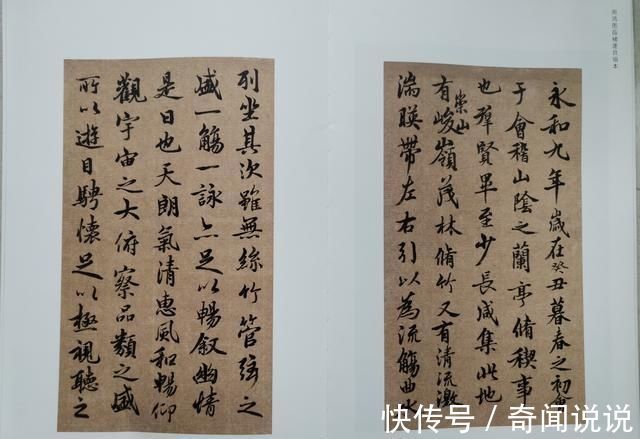 永和九年歲在癸丑暮春之初會
于會稽山陰之蘭亭脩稧事
也羣賢畢至少長咸集此地
有崇山峻嶺茂林脩竹又有清流激
湍暎帶左右引以為流觴曲水
列坐其次雖無絲竹管弦之
盛一觴一詠亦足以暢叙幽情
是日也天朗氣清惠風和暢仰
觀宇宙之大俯察品類之盛
所以遊目騁懷足以極視聽之
快传号 / 奇闻说说